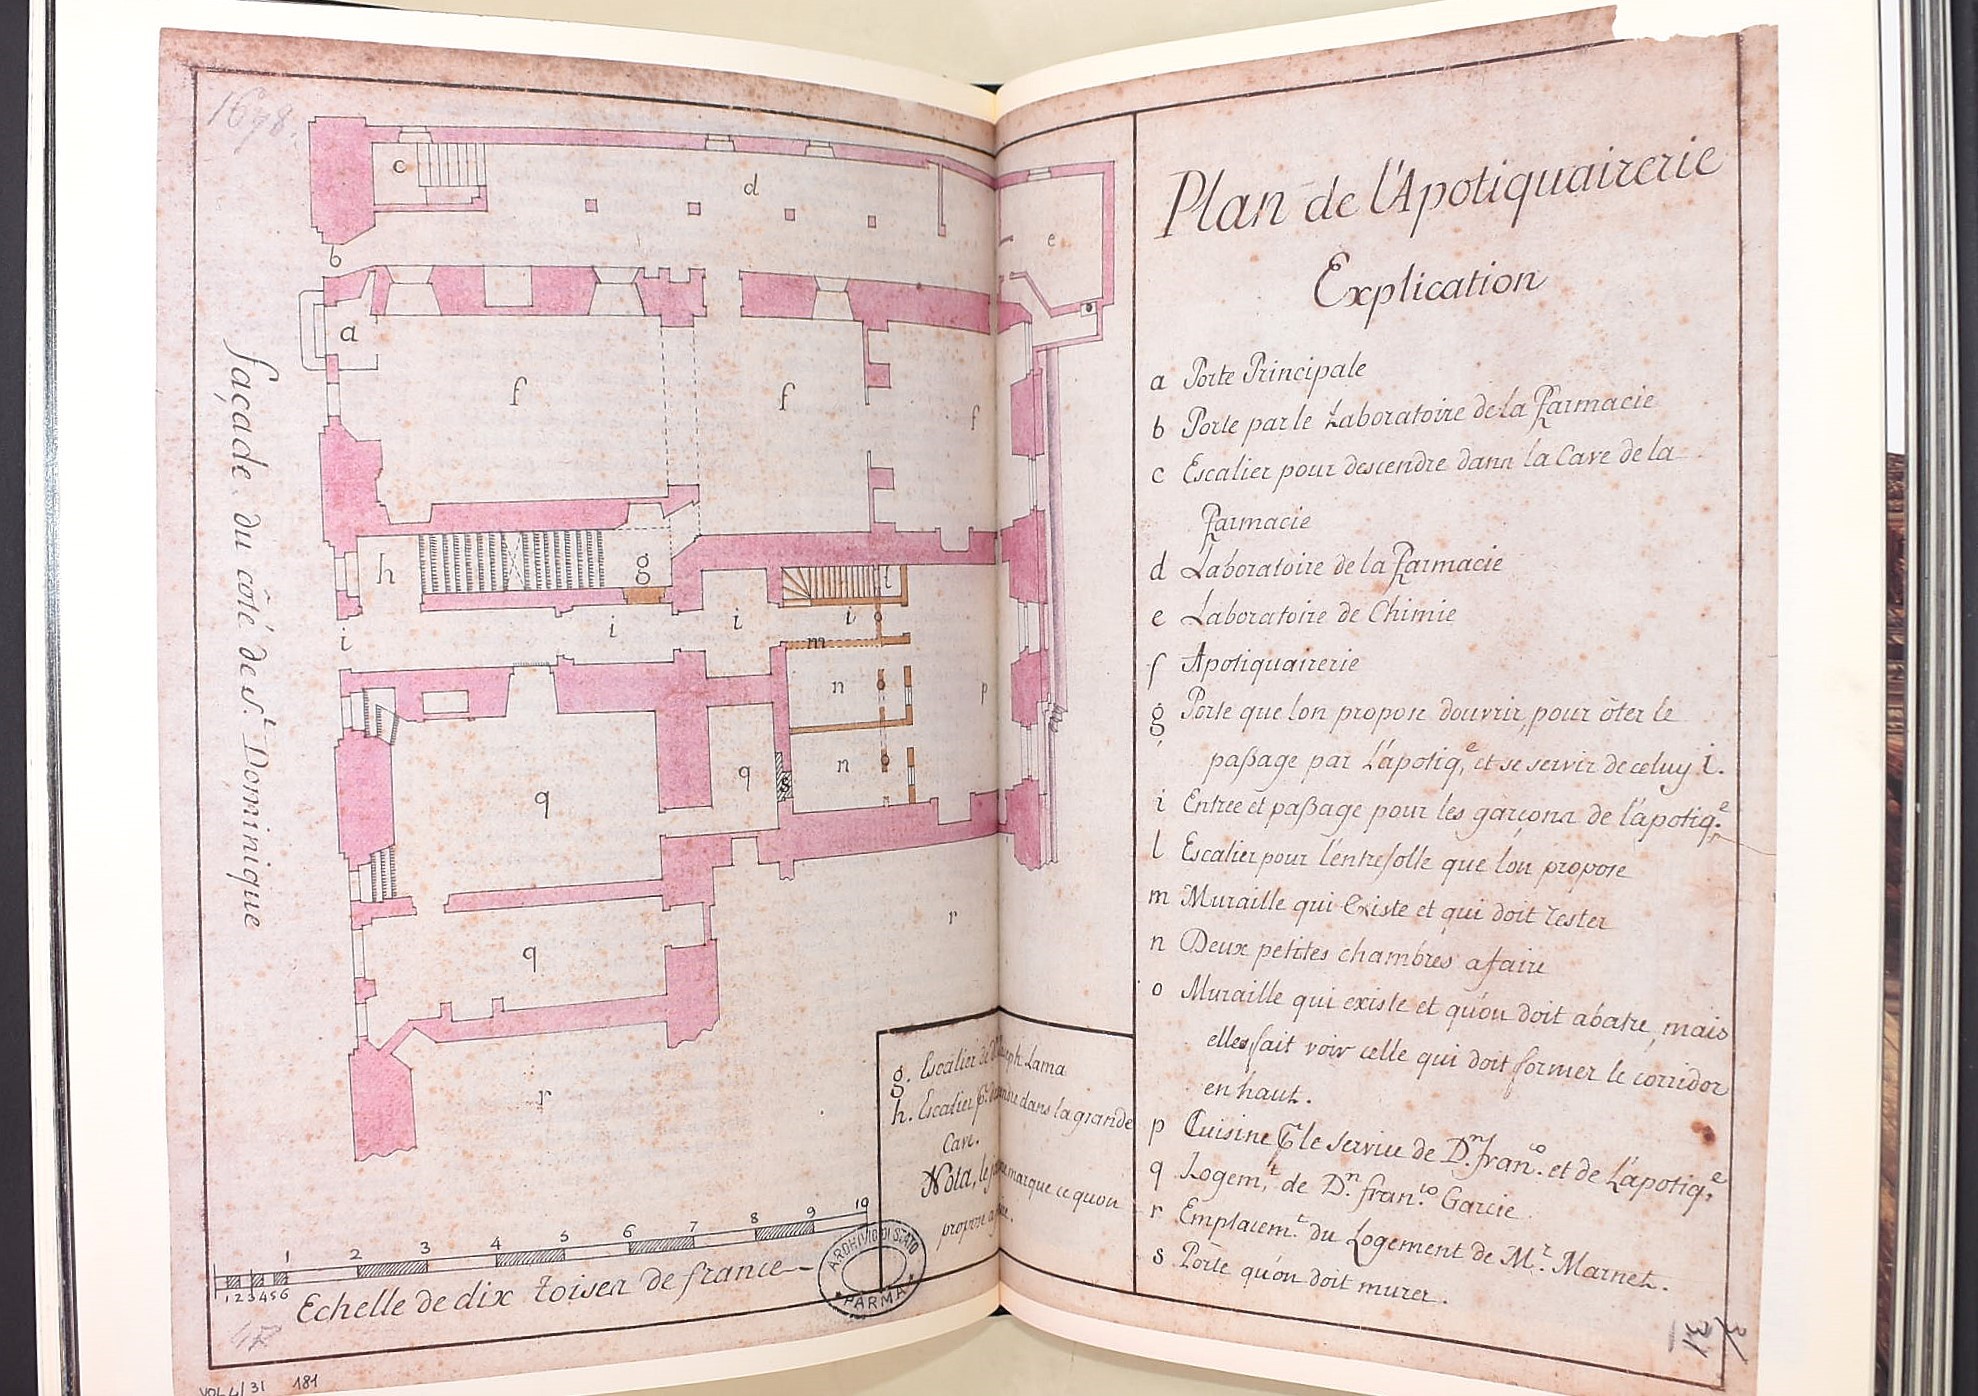 1698.
c
d
e
b
a
f
f
f
h
g
i
i
i
l
i
o
m
n
p
n
o
q
s
q
q
r
r
façade, du côté de S.t Dominique
Plan de l'Apotiquairerie
Explication
a Porte Principale
b Porte par le Laboratoire de la Farmacie
c Escalier pour descendre dans la Cave de la
Farmacie
d Laboratoire de la Farmacie
e Laboratoire de Chimie
f Apotiquairerie
g Porte que lon propon douvrir, pour ôter le
paßage par L'apotiq,e et se servir de celuy i.
i Entree et paßage pour les garçons de l'apotiq.e
l Escalier pour l'entresolle que lon propose
m Muraille qui Existe et qui doit rester
n Deux petites chambres afaire
o Muraille qui existe et qu'on doit abatre, mais
elle fait voir celle qui doit former le corridor
en haut.
p Cuisine le service de D.n fran.co et de L'apotiq.e
q Logem,t de D.n fran.co Garcie
r Emplacem.t du Logement de M.r Marnet.
s Porte qu'on doit murer.
g. Escalier de Joseph Lama
h. Escalier dans la grande
Cave.
Nota, le marque ce quon
propose
1 2 3 4 5 6 7 8 9 10
1 2 3 4 5 6
Echelle de dix toises de france
ARCHIVIO DI STATO
PARMA
VOL 4/31 181
3/
31